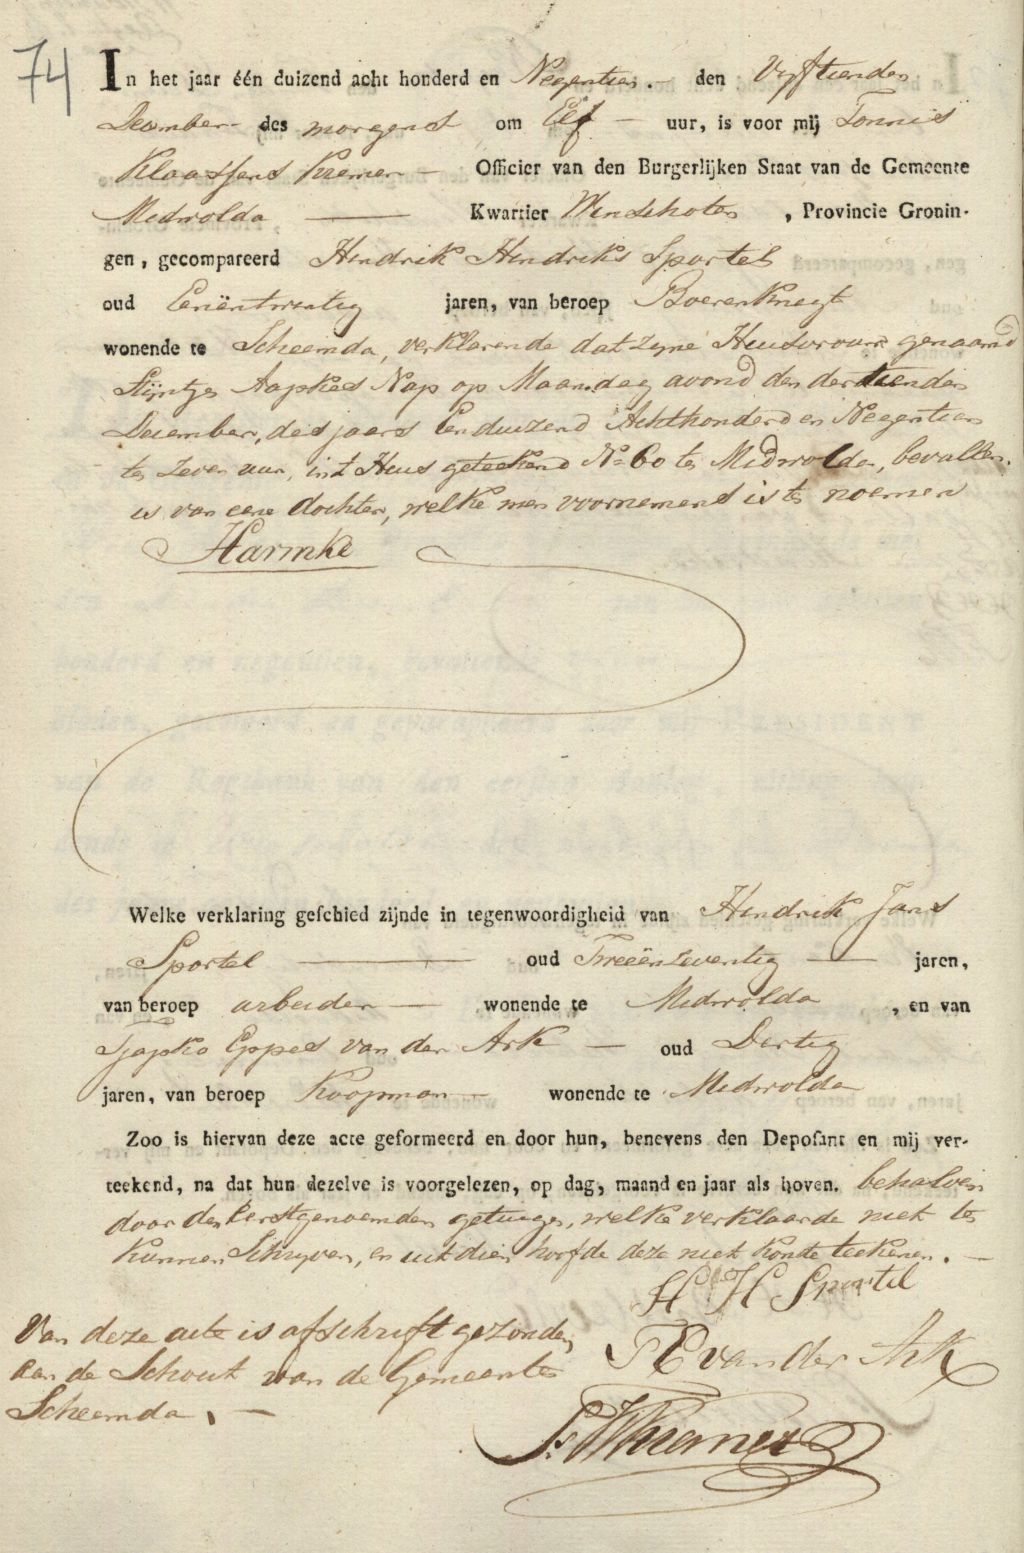 74
In het jaar één duizend acht honderd en Negentien. den Vyftienden
December des morgens om Elf uur, is voor mij Tonnis
Klaassens Kremer Officier van den Burgerlijken Staat van de Gemeente
Midwolda Kwartier Winschoten, Provincie Gronin-
gen, gecompareerd Hendrik Hendriks Sportel
oud Eenëntwintig jaren, van beroep Boerenknegt
wonende te Scheemda, verklarende dat zyne Huisvrouw genaamd
Stijntje Aapkes Nap op Maandag avond den dertienden
December, des jaars Eenduizend Achthonderd en Neegentien
te zeven uur, int Huis geteekend No 60 te Midwolda, bevallen
is van eene dochter, welke men voornemens is te noemen
Harmke
Welke verklaring geschied zijnde in tegenwoordigheid van Hendrik Jans
Sportel oud Tweeënzeventig jaren,
van beroep arbeider wonende te Midwolda, en van
Tjapko Eppes van der Ark oud Dertig
jaren, van beroep Koopman wonende te Midwolda
Zoo is hiervan deze acte geformeerd en door hun, benevens den Deposant en mij ver-
teekend, na dat hun dezelve is voorgelezen, op dag, maand en jaar als boven. behalven
door den eerstgenoemden getuige, welke verklaarde niet te
kunnen Schryven, en uit dien hoofde deze niet konde teekenen.
H H Sportel
Van deze acte is afschrift gezonden
TE van der Ark
aan de Schout van de Gemeente
Scheemda.
Kremer